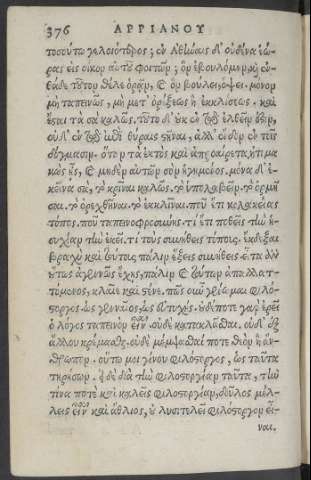 376 ΑΡΡΙΑΝΟΥ
τοσούτῳ γελοιότερος; ἐν Ἀθήναις δ' οὐδένα ἑώ-
ρας εἰς οἶκον αὐτοῦ φοιτῶν; ὃν ἐβουλόμην. καὶ ἐν-
θάδε τοῦτον θέλε ὁρᾷν, καὶ ὃν βούλει, ὄψει. μόνον
μὴ ταπεινῶς, μὴ μετ' ὀρέξεως ἢ ἐκκλίσεως, καὶ
ἔσται τὰ σὰ καλῶς. τοῦτο δ' οὐκ ἐν τῷ ἐλθεῖν ἐστὶν,
οὐδ' ἐν τῷ ἐπὶ θύραις στῆναι, ἀλλ' ἔνδον ἐν τοῖς
δόγμασιν. ὅταν τὰ ἐκτὸς καὶ ἀπροαίρετα ἠτιμα
κὼς ᾖς, καὶ μηδὲν αὐτῶν σὸν ἡγημένος. μόνα δ' ἐ-
κεῖνα σὰ, τὸ κρῖναι καλῶς. τὸ ὑπολαβεῖν. τὸ ὁρμῆ
σαι. τὸ ὀρεχθῆναι. τὸ ἐκκλῖναι. ποῦ ἔτι κολακείας
τόπος. ποῦ ταπεινοφροσύνης. τί ἔτι ποθεῖς τὴν ἡ-
συχίαν τὴν ἐκεῖ. τί τοὺς συνήθεις τόπους. ἔκδεξαι
βραχὺ καὶ τούτους πάλιν ἕξεις συνήθεις. εἶτα ἂν
οὕτως ἀγεννῶς ἔχῃς, πάλιν καὶ τούτων ἀπαλλατ-
τόμενος, κλαῖε καὶ στένε. πῶς οὖν γένωμαι φιλόστορ-
γος. ὡς γενναῖος, ὡς εὐτυχής. οὐδέποτε γὰρ ἐρεῖ
ὁ λόγος ταπεινὸν εἶναι. οὐδὲ κατακλᾶσθαι. οὐδ' ἐξ
ἄλλου κρέμασθαι. οὐδὲ μέμψασθαί ποτε θεὸν ἢ ἄν-
θρωπον. οὕτω μοι γίνου φιλόστοργος, ὡς ταῦτα
τηρήσων. εἰ δὲ διὰ τὴν φιλοστοργίαν ταῦτα, τὴν
τίνα ποτὲ καὶ καλεῖς φιλοστοργίαν, δοῦλος μέλ-
λεις εἶναι καὶ ἄθλιος, οὐ λυσιτελεῖ φιλόστοργον εἶ-
ναι.